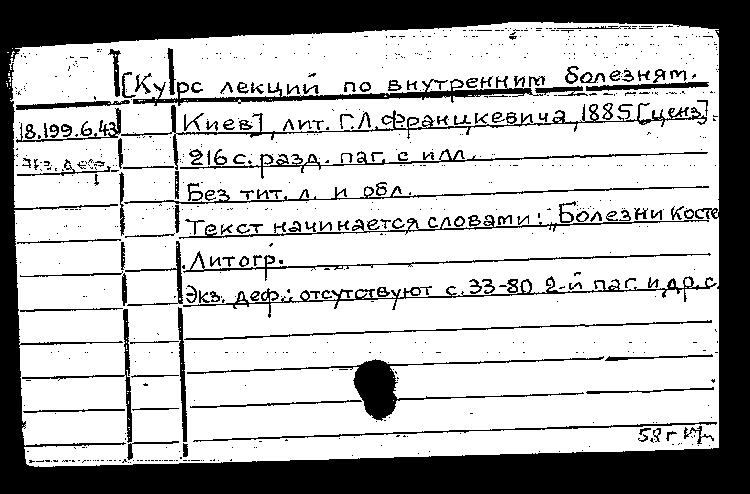 [Курс лекций по внутренним болезням.
18.199.6.43 Киев], лит. Г.Л. Францкевича, 1885 [ценз].
Экз. деф. 216 с. разд. паг. с илл.
Без тит. л. и обл.
Текст начинается словами: „Болезни косте
Литогр.
Экз. деф.: отсутствуют с. 33-80 2-й паг. и др. с.
58 г